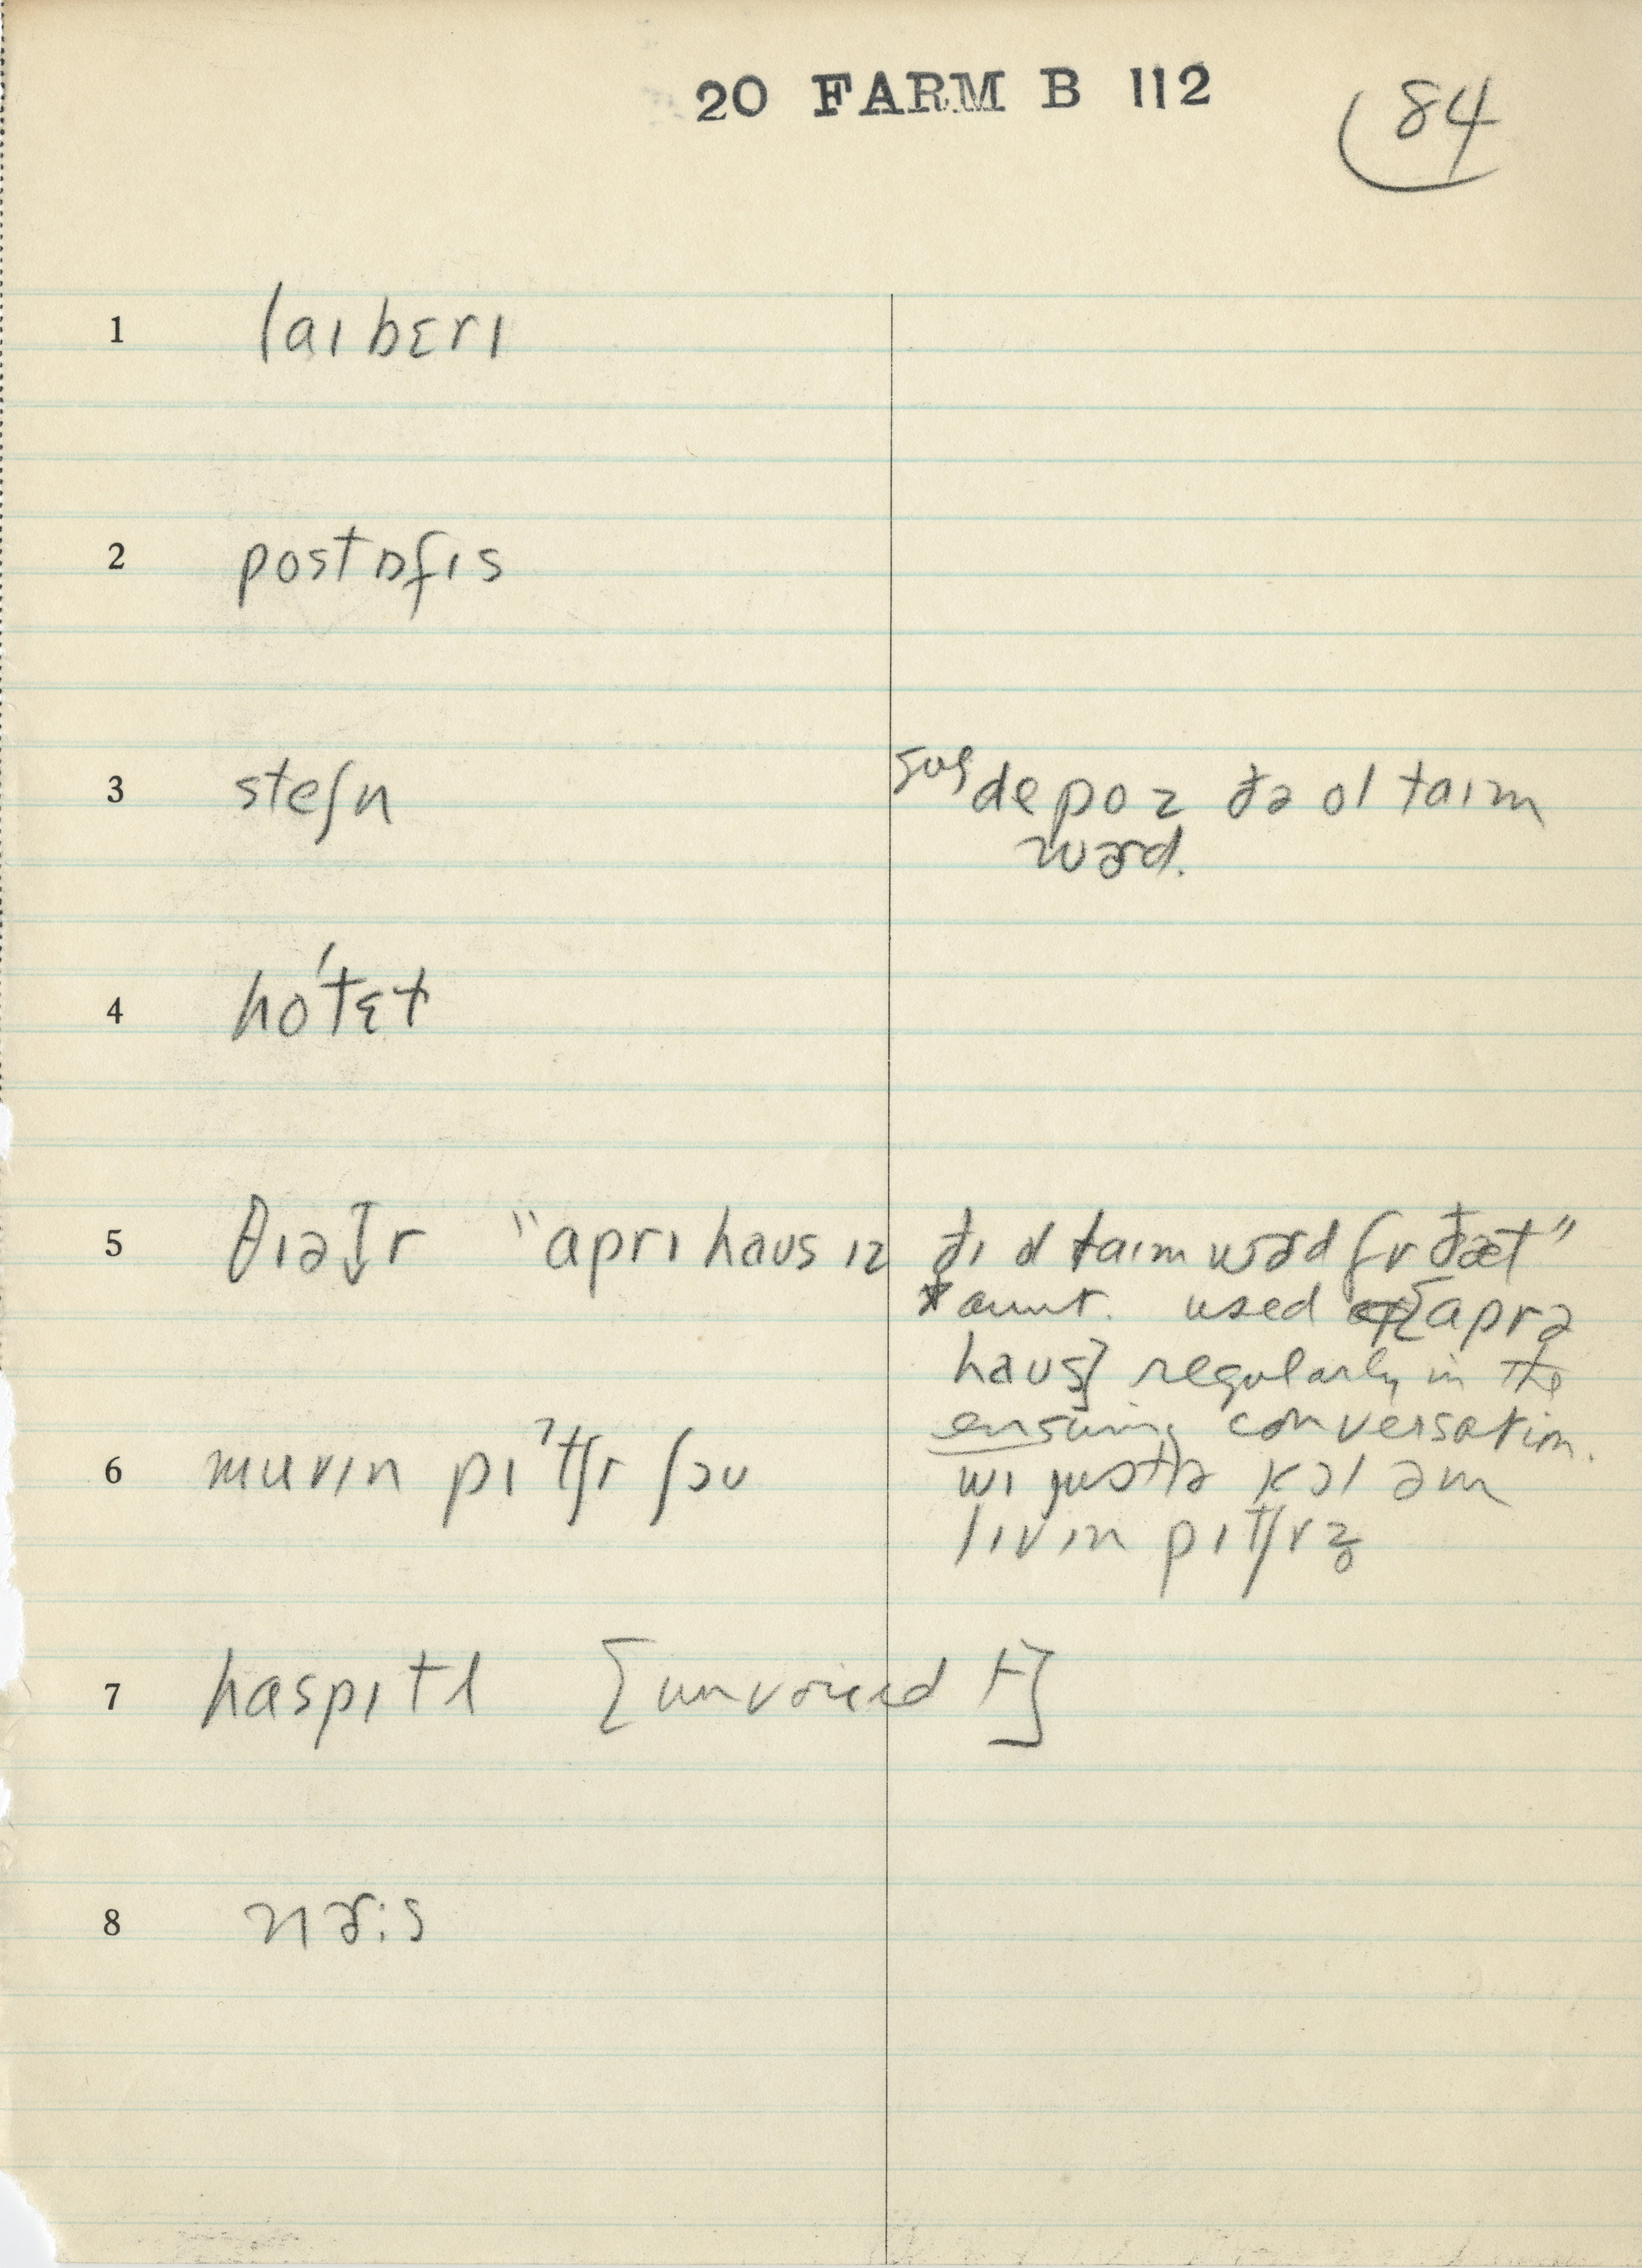 20 FARM B 112
84
1 laɪbɛrɪ
2 postɒfɪs
3 steʃn
sug depo z ðə ol taɪm
wɚd.
4 ho'tɛt
5 θɪətr "aprɪ haus ɪz ðɪ ol taɪm wɚd fr ðæt"
*aunt. used [aprə
haus] regularly in the
ensuing conversation.
6 muvɪn pɪ'tʃr ʃou
wɪ justtə kɔl əm
lɪvɪn pɪtʃrz
7 haspɪtl [unvoiced t]
8 nɚ:s